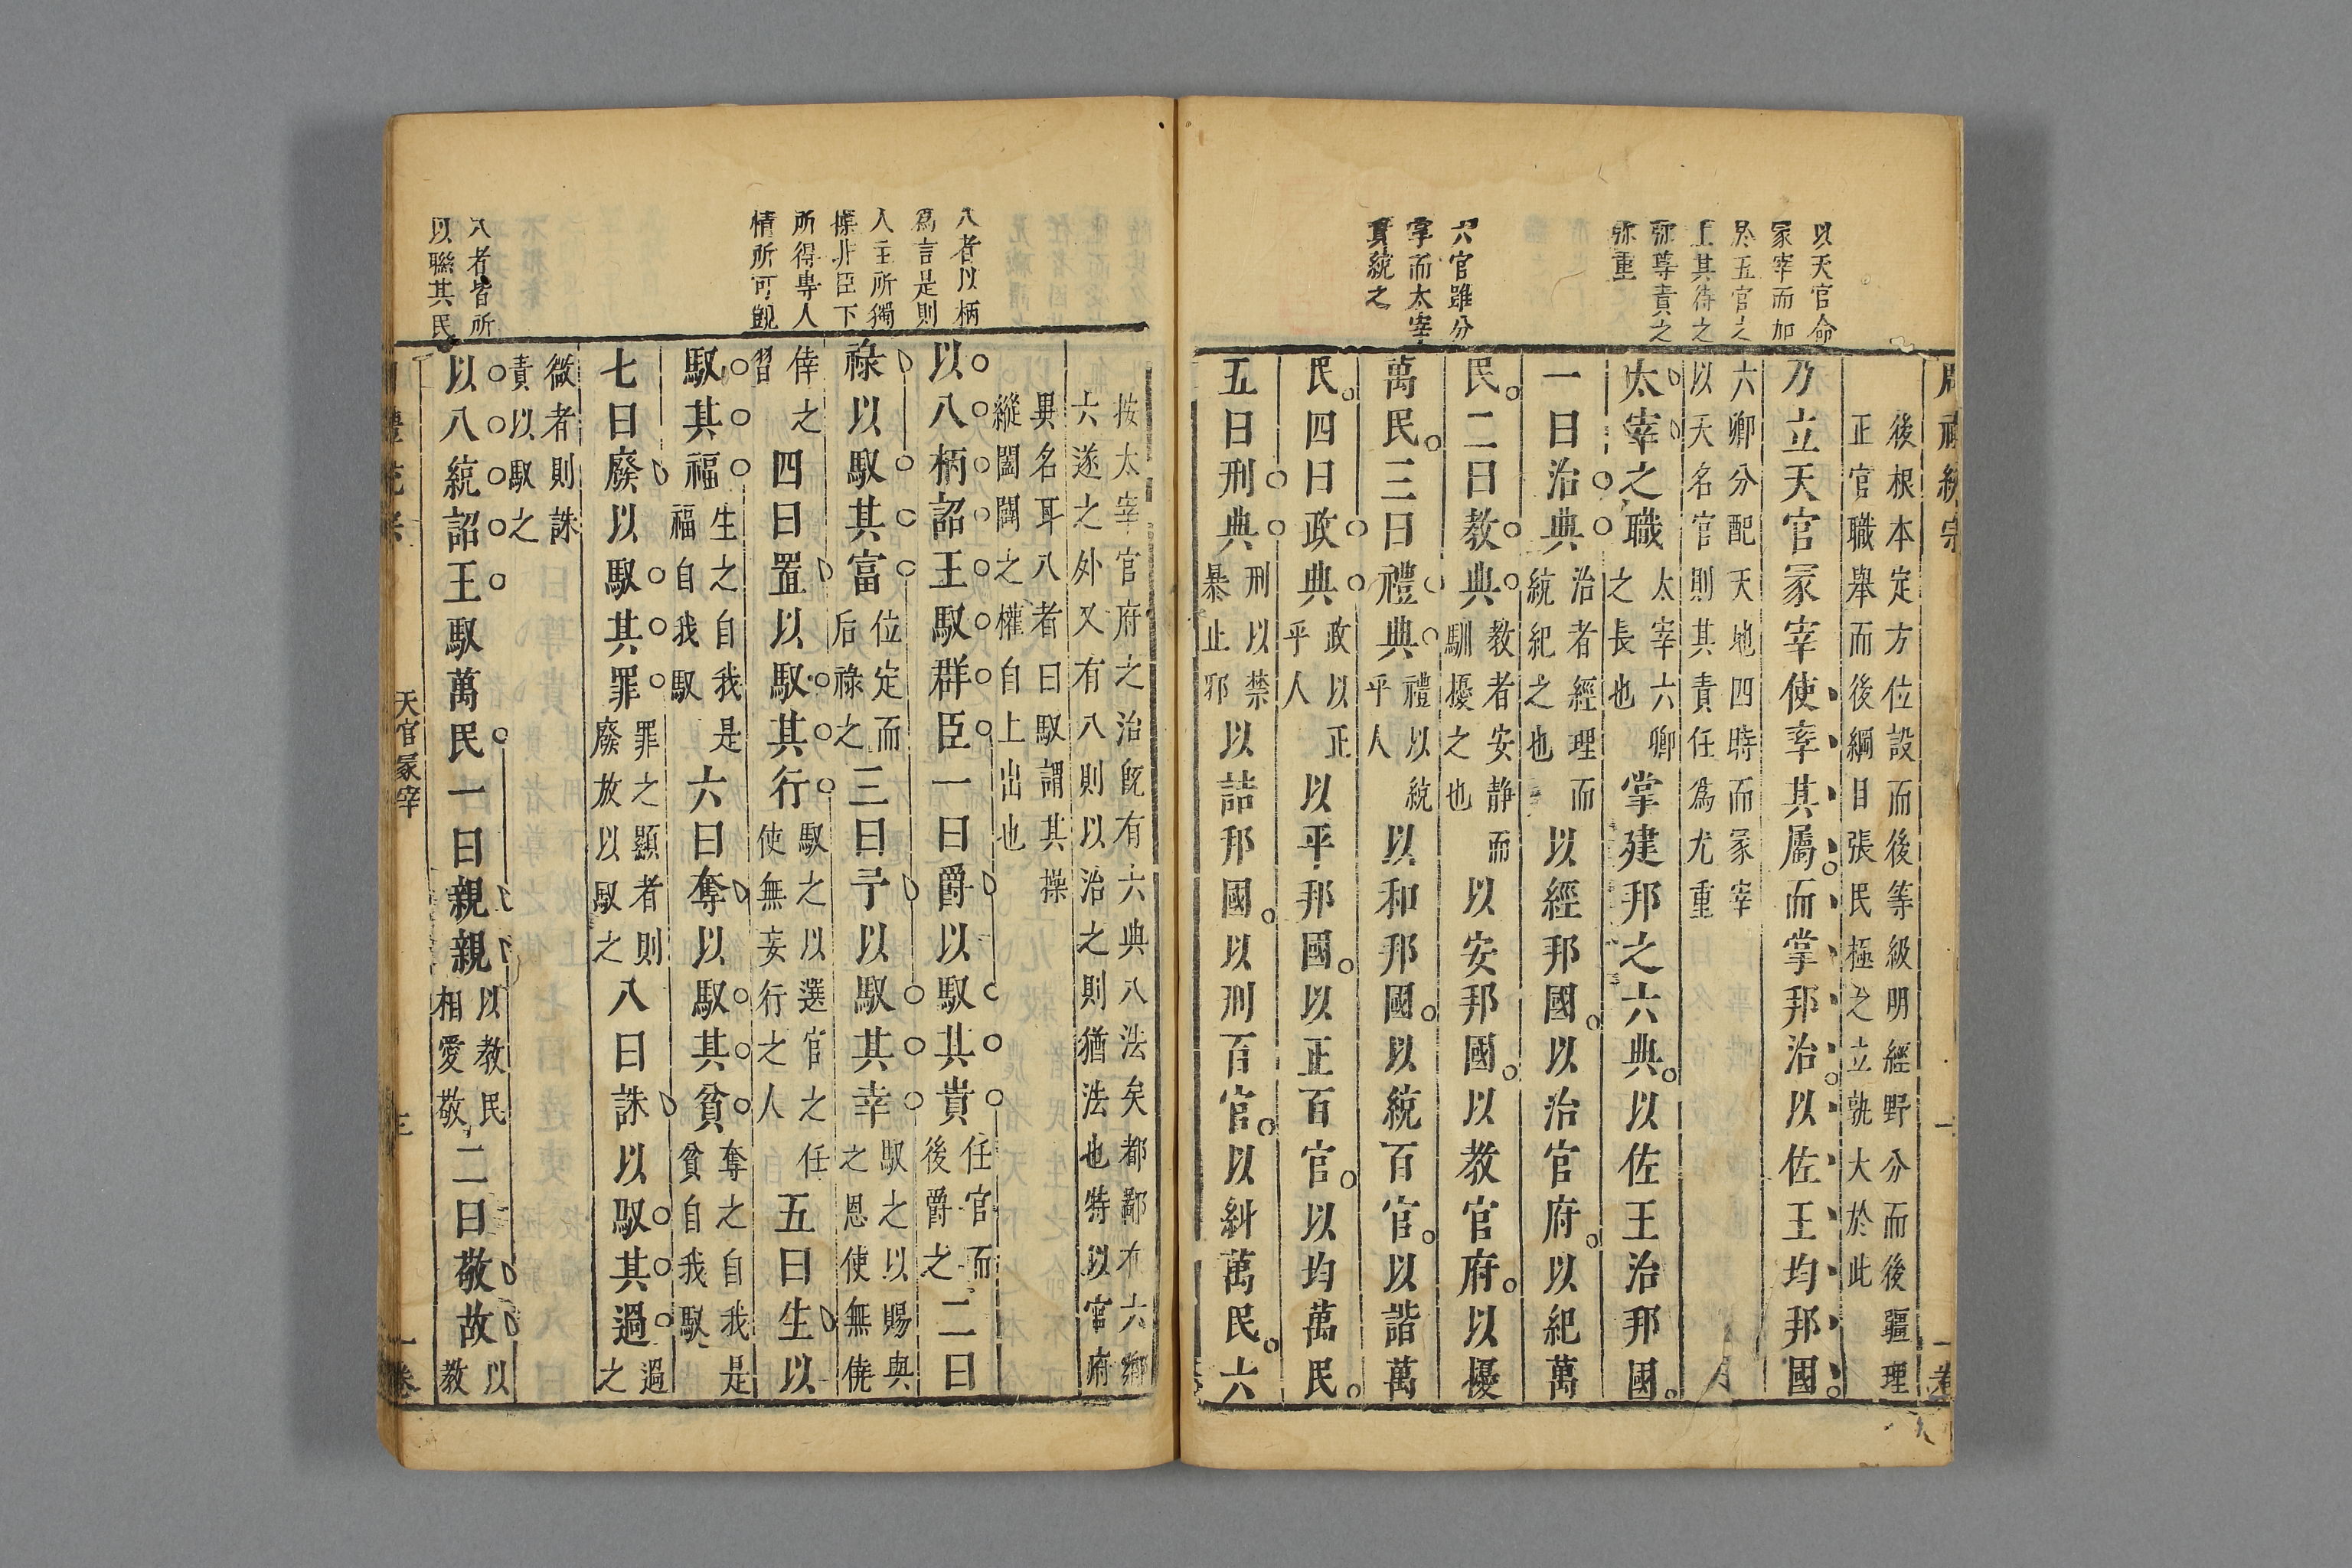 以天官命
冡宰而加
於五官之
上其待之
弥尊責之
弥重
六官雖分
掌而太宰
實統之
後根本定方位設而後等級明經野分而後疆理
正官職舉而後綱目張民極之立孰大於此
乃立天官冡宰使率其屬而掌邦治以佐王均邦國
六卿分配天地四時而冡宰
以天名官則其責任爲尤重
太宰之職
太宰六卿
之長也
掌建邦之六典以佐王治邦國
一曰治典
治者經理而
統紀之也
以經邦國以治官府以紀萬
民二曰教典
教者安静而
馴擾之也
以安邦國以教官府以擾
萬民三曰禮典
禮以統
乎人
以和邦國以統百官以諧萬
民四曰政典
政以正
乎人
以平邦國以正百官以均萬民
五曰刑典
刑以禁
暴止邪
以詰邦國以刑百官以糾萬民六
八者以柄
爲言是則
人主所獨
操非臣下
所得專人
情所可覬
八者皆所
以聯其民
按太宰官府之治旣有六典八法矣都鄙有六鄉
六遂之外又有八則以治之則猶法也特以官府
異名耳八者曰馭謂其操
縱闔闢之權自上出也
以八柄詔王馭群臣一曰爵以馭其貴
任官而
後爵之
二曰
祿以馭其富
位定而
后祿之
三曰予以馭其幸
馭之以賜與
之恩使無僥
倖之
習
四曰置以馭其行
馭之以選官之任
使無妄行之人
五曰生以
馭其福
生之自我是
福自我馭
六曰奪以馭其貧
奪之自我是
貧自我馭
七曰廢以馭其罪
罪之顯者則
廢放以馭之
八曰誅以馭其過
過
之
微者則誅
責以馭之
以八統詔王馭萬民一曰親親
以教民
相愛敬
二曰敬故
以
教
天官冡宰
三
一卷